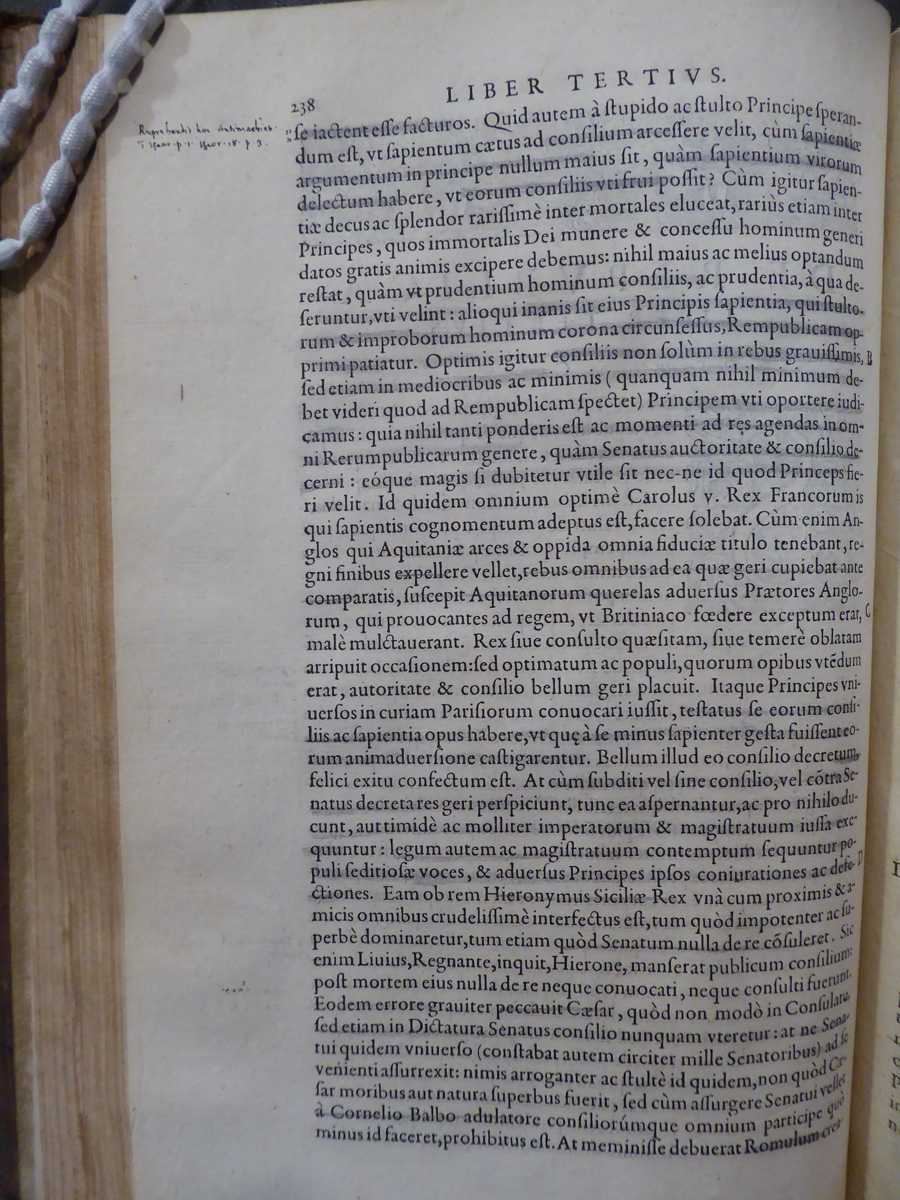 238
LIBER TERTIVS.
ſe iactent eſſe facturos. Quid autem à ſtupido ac ſtulto Principe ſperan-
dum eſt, vt ſapientum cætus ad conſilium arceſſere velit, cùm ſapientiæ
argumentum in principe nullum maius ſit, quàm ſapientium virorum
delectum habere, vt eorum conſiliis vti frui poſſit? Cùm igitur ſapien-
tiæ decus ac ſplendor rariſſimè inter mortales eluceat, rariùs etiam inter
Principes, quos immortalis Dei munere & conceſſu hominum generi
datos gratis animis excipere debemus: nihil maius ac melius optandum
reſtat, quàm vt prudentium hominum conſiliis, ac prudentia, à qua de-
ſeruntur, vti velint: alioqui inanis ſit eius Principis ſapientia, qui ſtulto-
rum & improborum hominum corona circunſeſſus, Rempublicam op-
primi patiatur. Optimis igitur conſiliis non ſolùm in rebus grauiſſimis, B
ſed etiam in mediocribus ac minimis ( quanquam nihil minimum de-
bet videri quod ad Rempublicam ſpectet) Principem vti oportere iudi-
camus: quia nihil tanti ponderis eſt ac momenti ad ręs agendas in om-
ni Rerumpublicarum genere, quàm Senatus auctoritate & conſilio de-
cerni: eóque magis ſi dubitetur vtile ſit nec-ne id quod Princeps fie-
ri velit. Id quidem omnium optimè Carolus v. Rex Francorum is
qui ſapientis cognomentum adeptus eſt, facere ſolebat. Cùm enim An-
glos qui Aquitaniæ arces & oppida omnia fiduciæ titulo tenebant, re-
gni finibus expellere vellet, rebus omnibus ad ea quæ geri cupiebat ante
comparatis, ſuſcepit Aquitanorum querelas aduerſus Prætores Anglo-
rum, qui prouocantes ad regem, vt Britiniaco fœdere exceptum erat, C
malè mulctauerant. Rex ſiue conſulto quæſitam, ſiue temerè oblatam
arripuit occaſionem: ſed optimatum ac populi, quorum opibus vtẽdum
erat, autoritate & conſilio bellum geri placuit. Itaque Principes vni-
uerſos in curiam Pariſiorum conuocari iuſſit, teſtatus ſe eorum conſi-
liis ac ſapientia opus habere, vt quę à ſe minus ſapienter geſta fuiſſent eo-
rum animaduerſione caſtigarentur. Bellum illud eo conſilio decretum,
felici exitu confectum eſt. At cùm ſubditi vel ſine conſilio, vel cõtra Se-
natus decreta res geri perſpiciunt, tunc ea aſpernantur, ac pro nihilo du-
cunt, aut timidè ac molliter imperatorum & magiſtratuum iuſſa exe-
quuntur: legum autem ac magiſtratuum contemptum ſequuntur po-
puli ſeditioſæ voces, & aduerſus Principes ipſos coniurationes ac defe- D
ctiones. Eam ob rem Hieronymus Siciliæ Rex vnà cum proximis & a-
micis omnibus crudeliſſimè interfectus eſt, tum quòd impotenter ac ſu-
perbè dominaretur, tum etiam quòd Senatum nulla de re cõſuleret. Sic
enim Liuius, Regnante, inquit, Hierone, manſerat publicum conſilium:
poſt mortem eius nulla de re neque conuocati, neque conſulti fuerunt.
Eodem errore grauiter peccauit Cæſar, quòd non modò in Conſulatu,
ſed etiam in Dictatura Senatus conſilio nunquam vteretur: at ne Sena-
tui quidem vniuerſo (conſtabat autem circiter mille Senatoribus) ad ſe
venienti aſſurrexit: nimis arroganter ac ſtultè id quidem, non quòd Cę-
ſar moribus aut natura ſuperbus fuerit, ſed cùm aſſurgere Senatui vellet
à Cornelio Balbo adulatore conſiliorúmque omnium participe quò
minus id faceret, prohibitus eſt. At meminiſſe debuerat Romulum